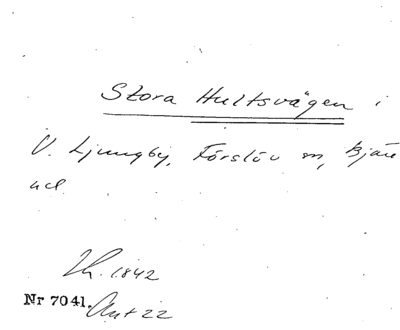 Stora Hultsvägen i
V. Ljungby, Förslöv sn, Bjäre
hd
Lh. 1842
Nr 7041. Akt 22